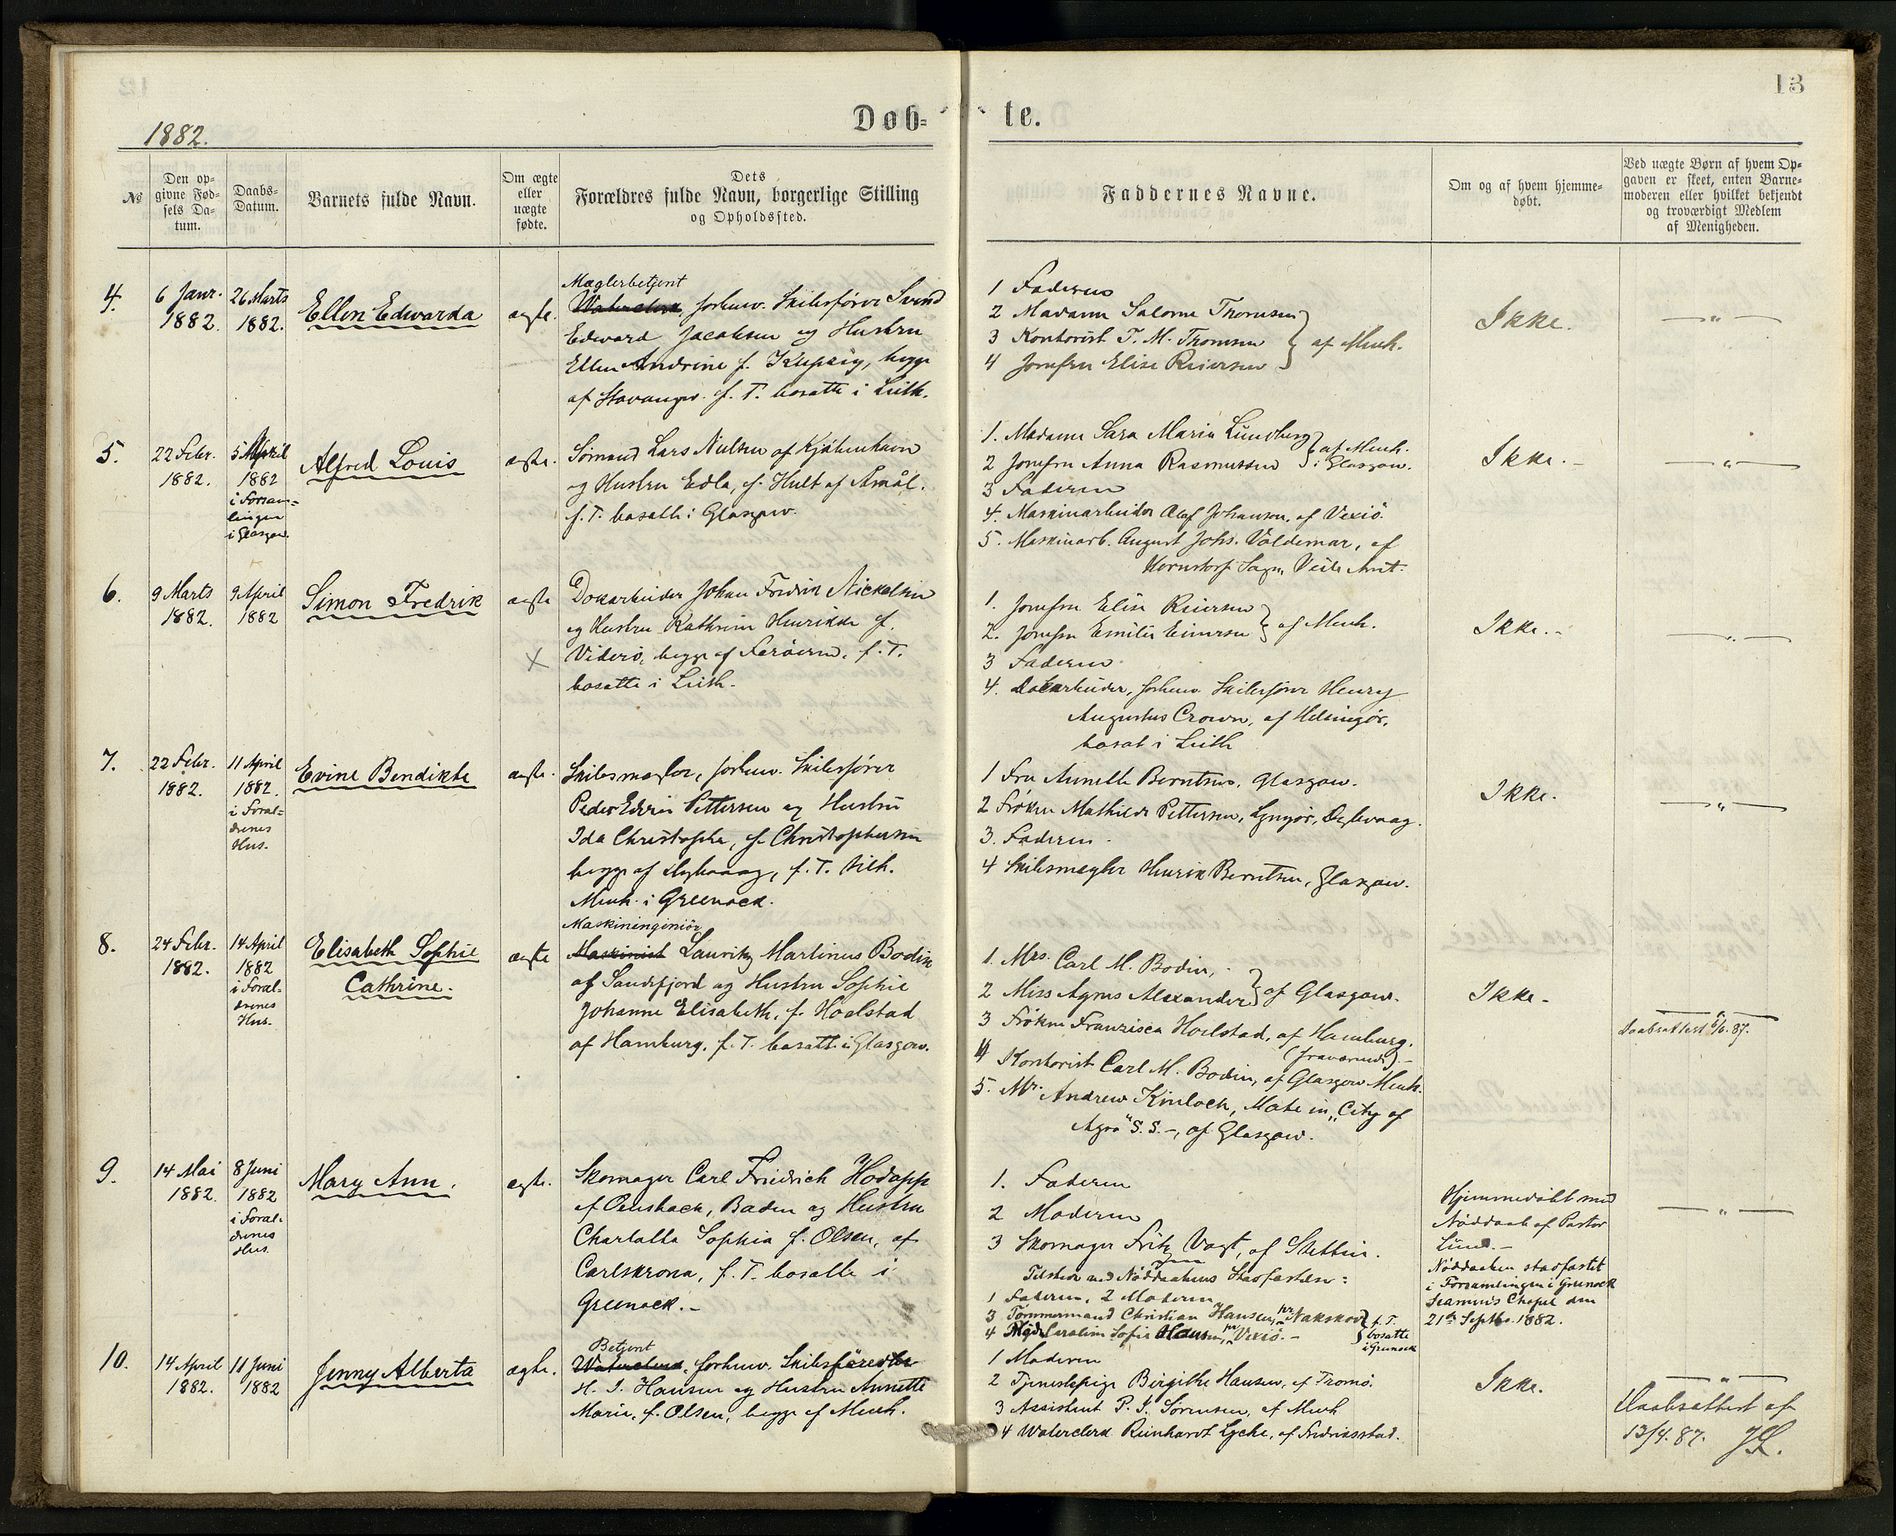 13
Døb-
te.
1882.
№
Den op-
givne Fød-
sels Da-
tum.
Daabs-
Datum.
Barnets fulde Navn.
Om ægte
eller
uægte
fødte.
Dets
Forældres fulde Navn, borgerlige Stilling
og Opholdssted.
Faddernes Navne.
Om og af hvem hjemme-
døbt.
Ved uægte Børn af hvem Op-
gaven er skeet, enten Barne-
moderen eller hvilket bekjendt
og troværdigt Medlem
af Menigheden.
4.
6 Janr.
1882.
26 Marts
1882.
Ellen Edwarda
ægte.
Mæglerbetjent
Waterclerk, forhenv. Skibsfører Svend
Edward Jacobsen og Hustru
Ellen Andrine f. , begge
af Stavanger. f. T. bosatte i Leith.
1 Faderen
2 Madame Salome Thomsen
3 Kontorist T. M. Thomsen
4 Jomfru Elise Reiersen
af Menh.
Ikke.
— " —
5.
22 Febr.
1882.
5 April
1882
i Forsam-
lingen
i Glasgow.
Alfred Louis
ægte.
Sømand Lars Nielsen af Kjøbenhavn
og Hustru Edla, f. Hult af Åmål.
f. T. bosatte i Glasgow.
1. Madame Sara Maria Lundberg
2 Jomfru Anna Rasmussen
af Menh.
i Glasgow.
3 Faderen
4. Maskinarbeider Olof Johanson, af Vexiö.
5. Maskinarb. August Johs. Valdemar, af
Sogn, Veile Amt.
Ikke. -
— " —
6.
9 Marts
1882.
9 April
1882
Simon Fredrik
ægte
Dokarbeider Johan Fredrik Nickelsen
og Hustru Kathrine Henrikke f.
Viderö, begge af Færöerne, f. T.
bosatte i Leith.
X
1. Jomfru Elise Reiersen
2. Jomfru Emilie Einersen
af Menh.
3 Faderen
4. Dokarbeider, forhenv. Skibsfører Henry
Augustus Crown, af Helsingör,
bosat i Leith
Ikke. -
— " —
7.
22 Febr.
1882.
11 April
1882.
i Foræl-
drenes
Hus.
Evine Bendikte
ægte.
Skibsmægler, forhenv. Skibsfører
Peder Edvin Pettersen og Hustru
Ida Christophe, f. Christophersen
begge af Dybvaag, f. T. tilh.
Menh. i Greenock.
1 Fru Annette Berntsen, Glasgow.
2 Frøken Mathilde Pettersen, Lyngör, Dybvaag.
3. Faderen.
4 Skibsmægler Henrik Berntsen, Glasgow.
Ikke.
— " —
8.
24 Febr.
1882.
14 April
1882
i Foræl-
drenes
Hus.
Elisabeth Sophie
Cathrine.
ægte
Maskiningeniör
Maskinist Lauritz Martinus Bodin
af Sandefjord og Hustru Sophie
Johanne Elisabeth, f. Hoelstad
af Hamburg. f. T. bosatte i Glasgow.
1. Mrs. Carl M. Bodin,
2 Miss Agnes Alexander
af Glasgow.
3 Frøken Franzisca Hoelstad, af Hamburg.
(fraværende).
4 Kontorist Carl M. Bodin, af Glasgow Menh.
5. Mr. Andrew Kinloch, Mate in "City of
Agra" S. S. -, af Glasgow.
Ikke -
— " —
Daabsattest 87.
9.
14 Mai
1882.
8 Juni
1882
i Foræl-
drenes
Hus
Mary Ann.
ægte.
Skomager Carl Friedrich Hodapp
af , Baden og Hustru
Charlotta Sophia f. Olsen, af
Carlskrona, f. T. bosatte i
Greenock. -
1. Faderen
2 Moderen
3 Skomager Fritz Vogt, af Stettin.
Tilstede ved Nöddaabens Stadfæstelse:
1 Faderen, 2 Moderen
3 Tömmermand Christian Hansen, Nakskov
4 Caroline Sofie , Vexiö. -
f. T.
bosatte
i Greenock
Hjemmedøbt med
Nöddaab af Pastor
Lund. -
Nöddaaben stadfæstet
i Forsamlingen i Greenock
Seamens Chapel den
21de Septbr. 1882.
— " —
10.
14 April
1882.
11 Juni
1882
Jenny Alberta
ægte.
Betjent
Waterclerk, forhenv. Skibsfører
H. J. Hansen og Hustru Annette
Maria, f. Olsen, begge af Menh.
1 Moderen
2 Tjenestepige Birgithe Hansen, af Tromö.
3 Assistent P. J. Sörensen, af Menh
4 Waterclerk Reinhardt Lycke, af Fredriksstad.
Ikke.
— " —
Daabsattest af
13/4. 87. JL.